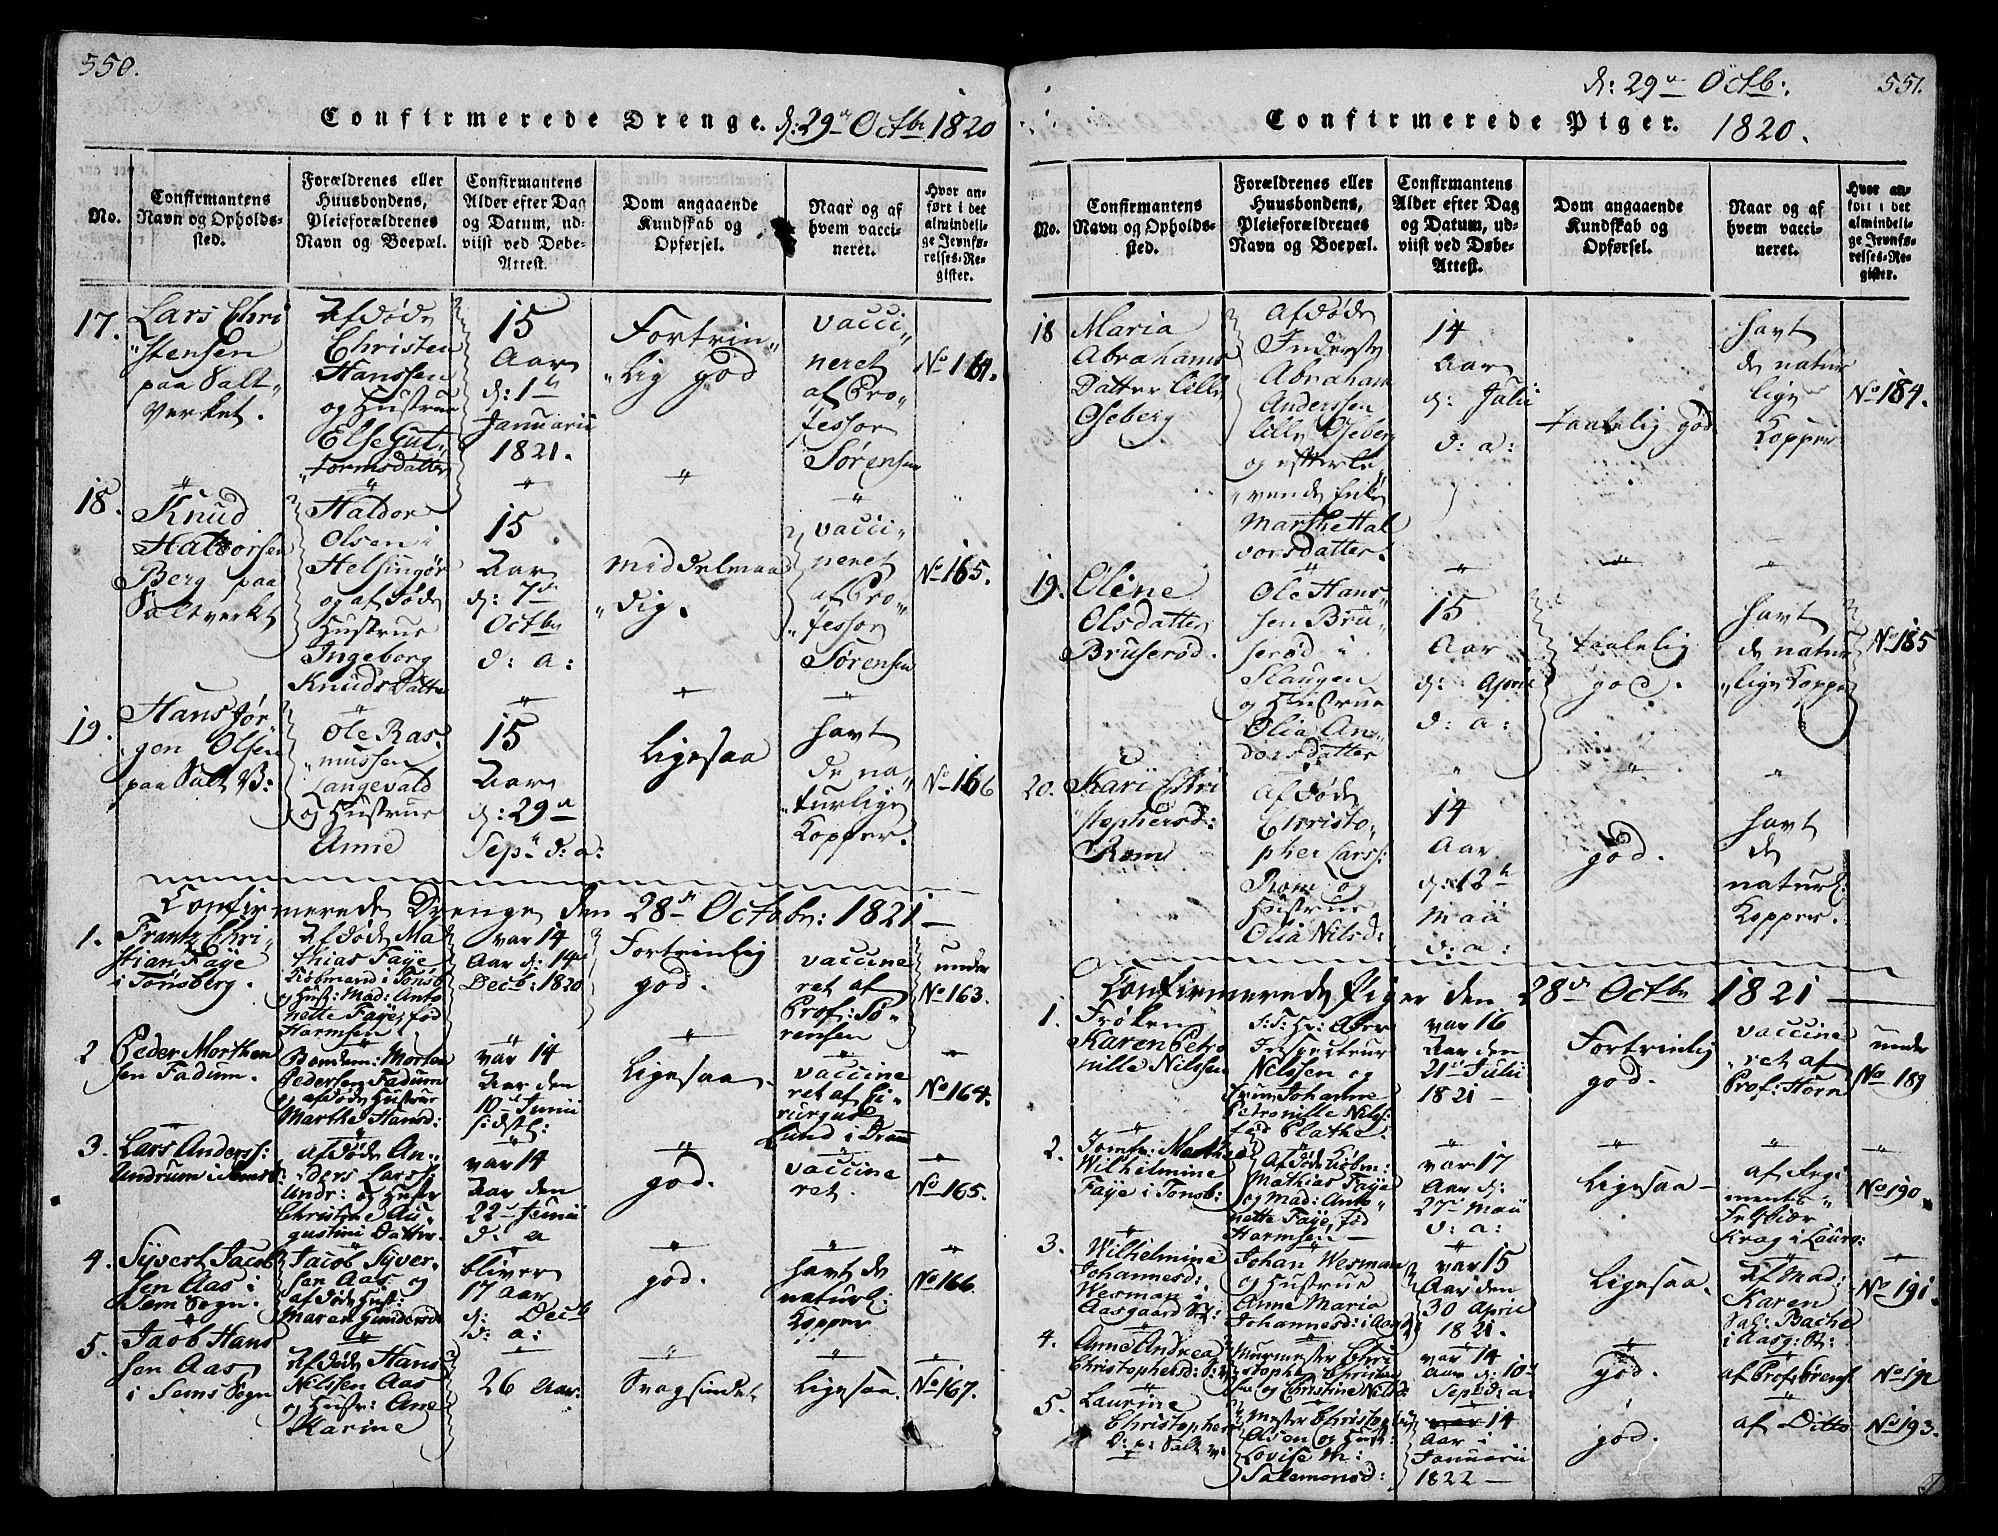 550.
Confirmerede Drenge. d: 29de Octbr 1820
No.
Confirmantens
Navn og Opholds-
sted.
Forældrenes eller
Huusbondens,
Pleieforældrenes
Navn og Boepæl.
Confirmantens
Alder efter Dag
og Datum, ud-
viist ved Døbe-
Attest.
Dom angaaende
Kundskab og
Opførsel.
Naar og af
hvem vacci-
neret.
Hvor an-
ført i det
almindeli-
ge Jevnfø-
relses-Re-
gister.
17.
Lars Chri
stensen
paa Salt
verket.
Afdøde
Christen
Hanssen
og Hustrue
Else Gut
tormsdatter
15
Aar
d: 1te
Januarii
1821.
Fortrin
lig god
vacci
neret
af Pro
fessor
Sørensen
No 164.
18.
Knud
Halvorsen
Berg paa
Saltverket
Haldor
Olsen i
Helsingør
og afdøde
Hustrue
Ingeborg
Knuds Datter
15
Aar
d: 7de
Octbr
d: a:
middelmaa
dig.
vacci
neret
af Pro
fessor
Sørensen
No 165.
19.
Hans Jør
gen Olsen
paa Salt V:
Ole Ras
mussen
Langevald
og Hustrue
Anne
15
Aar
d: 29de
Sepr d: a:
Ligesaa
havt
de na
turlige
Kopper.
No 166
Confirmerede Drenge den 28de Octobr: 1821
1.
Frantz Chri
stian Faye
i Tønsberg.
Afdøde Ma
thias Faye
Kiøbmand i Tønsb
og Hust: Mad: Anto
nette Faye, fød
Harmsen
var 14
Aar d: 14de
Decb: 1820
Fortrinlig
god.
vaccine
ret af
Prof: Sø
rensen
under
No 163.
2
Peder Morthen
sen Fadum.
Bondem: Morten
Pedersen Fadum
og afdøde Hustrue
Marthe Hansd:
var 14
Aar den
10de Junii
sidstl:
Ligesaa.
vaccine
ret af Ci
rurgus
Lund i Dram
No 164.
3.
Lars Anderss:
Undrum i Sems
Afdøde An
ders Larss
Undr: og Hustr
Christine Au
gustini Datter.
var 14
Aar den
22de Junii
d: a
god.
vaccine
ret.
No 165.
4.
Syvert Jacob
sen Aas i
Sem Sogn.
Jacob Syver
sen Aas og
afdøde Hust:
Maren Gundersd
bliver
17 Aar
d: Decb
d: a:
god.
havt de
naturl:
Kopper
No 166.
5.
Jacob Hans
sen Aas
i Sems Sogn
Afdøde Hans
Nilssen Aas
og Hustr: Ane
Karine
26 Aar:
Svagsindet
Ligesaa.
No 167.
d: 29de Octb:
551.
Confirmerede Piger. 1820.
No.
Confirmantens
Navn og Opholds-
sted.
Forældrenes eller
Huusbondens,
Pleieforældrenes
Navn og Boepæl.
Confirmantens
Alder efter Dag
og Datum, ud-
viist ved Døbe-
Attest.
Dom angaaende
Kundskab og
Opførsel.
Naar og af
hvem vacci-
neret.
Hvor an-
ført i det
almindeli-
ge Jevnfø-
relses-Re-
gister.
18
Maria
Abrahams
Datter Lille
Oseberg
Afdøde
Inderste
Abraham
Anderssen
Lille Oseberg
og efterle
vende Enke
Marthe Hal
vorsdatter.
14
Aar
d: Julii
d: a:
taalelig god.
havt
de natur
lige
Kopper
No 184.
19.
Oline
Olsdatter
Bruserød.
Ole Hans
sen Bru
serød i
Slaugen
og Hustrue
Olia An
dersdatter
15
Aar
d: April
d: a:
taalelig
god.
havt
de natur
lige Kopper
No 185
20.
Kari Chri
stophersd:
Rom
Afdøde
Christo
pher Larss:
Rom og
Hustrue
Olia Nilsd:
14
Aar
d: 12te
Maii
d: a:
god.
havt
de
naturl:
Kopper.
Confirmerede Piger den 28de Octbr 1821
1.
Frøken
Karen Petro
nille Nilssen
S: T: Hr: Over
Inspecteur
Nilssen og
Frue Johanne
Petronille Nilss:
fød Plathe.
var 16
Aar den
21de Julii
1821
Fortrinlig
god.
vaccine
ret af
Prof: Horn
under
No 189
2.
Jomfr: Mathea
Wilhelmine
Faye i Tønsb:
Afdøde Kiøbm:
Mathias Faye
og Mad: Anto
nette Faye, fød
Harmsen
var 17
Aar d:
27de Maii
d: a:
Ligesaa
af Regi
ments
Feldskiær
Krag i Laurv:
No 190.
3.
Wilhelmine
Johannesd:
Wesman i
Aasgaard St:
Johan Wesman
og Hustrue
Anne Maria
Johannesd: i Aasg
var 15
Aar den
30 April
1821.
Ligesaa.
Af Mad:
Karen
Sal: Bache
i Aasg: St:
No 191.
4.
Anne Andrea
Christophersd: S: v
Murmester Chri
stopher Christian
sen og Christine Nilsd:
var 14
Aar d: 10de
Sep: d: a:
god.
af Prof Sørens
No 192
5.
Laurine
Christopher
D: p: Salt v:
Mester Christopher
Olsen og Hust:
Lovise M:
Salemonsd:
var 14
Aar i
Januarii
1822
god.
af Ditto
No 193.